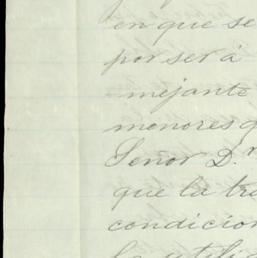 en que se
por ser á
mejante
menores q
Señor D.r
que la tra
condicion
la utilid